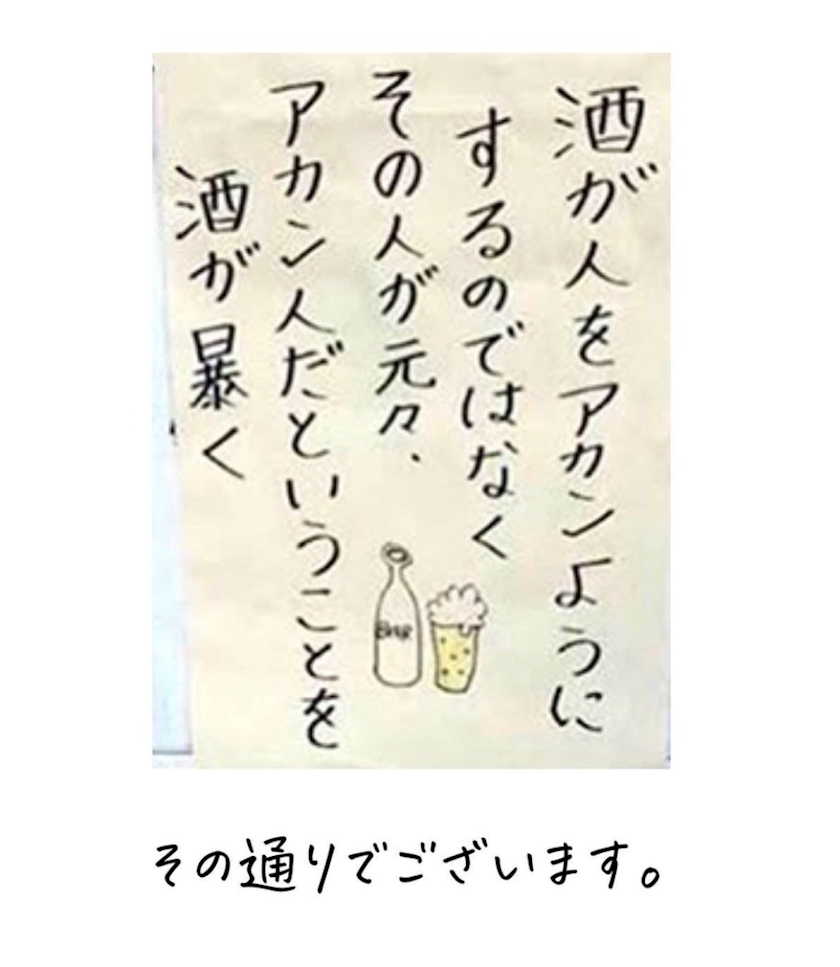 酒が人をアカンように
するのではなく
その人が元々、
アカン人だということを
酒が暴く
BEER
その通りでございます。